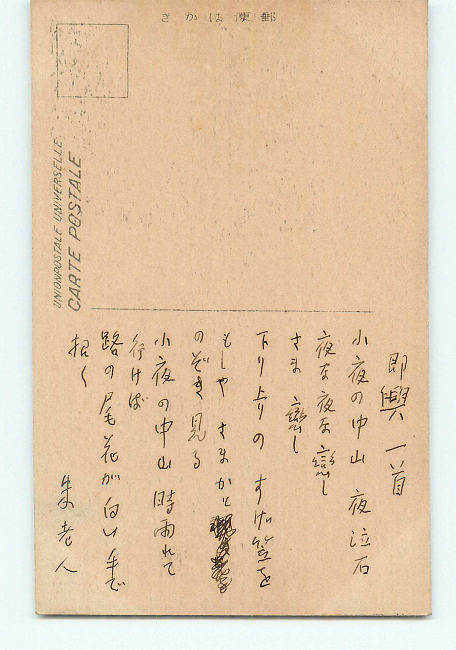 きがは便郵
UNION POSTALE UNIVERSELLE
CARTE POSTALE
即興一首
小夜の中山 夜泣石
夜な夜な戀し
さま 戀し
下り上りの すげ笠を
もしや さまかと
のぞき見る
小夜の中山 時雨れて
行けば
路の尾花が白い手で
招く
朱老人